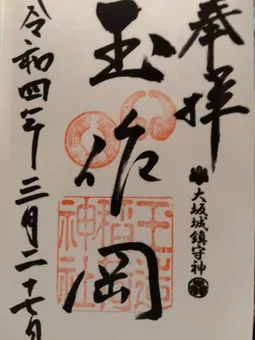 奉拝
大坂城鎮守神
玉作岡
玉造
稲荷
神社
令和四年三月二十七日